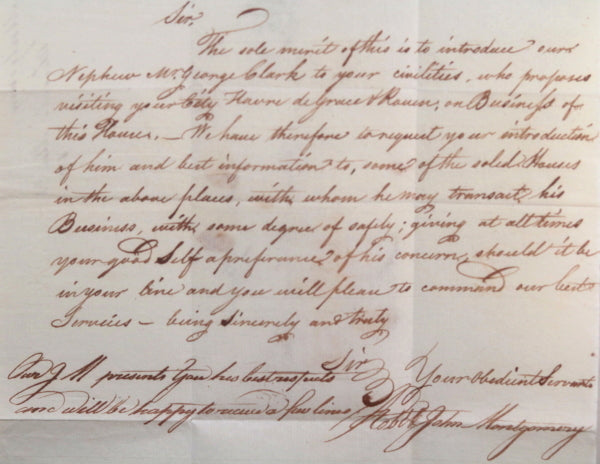 Sir.
The sole merit of this is to introduce our
Nephew Mr. George Clark to your civilities, who proposes
visiting your City Havre de Grace & Rouen, on Business of
this House. — We have therefore to request your introduction
of him and best information to, some of the solid Houses
in the above places, with whom he may transact his
Business, with some degree of safety; giving at all times
your good Self a preferance of his concern, should it be
in your Line and you will please to command our best
Services — being sincerely and truly
Sir
Your Obedient Servants
Our J M presents You his best respects
and will be happy to receive a few lines
Robt & John Montgomery